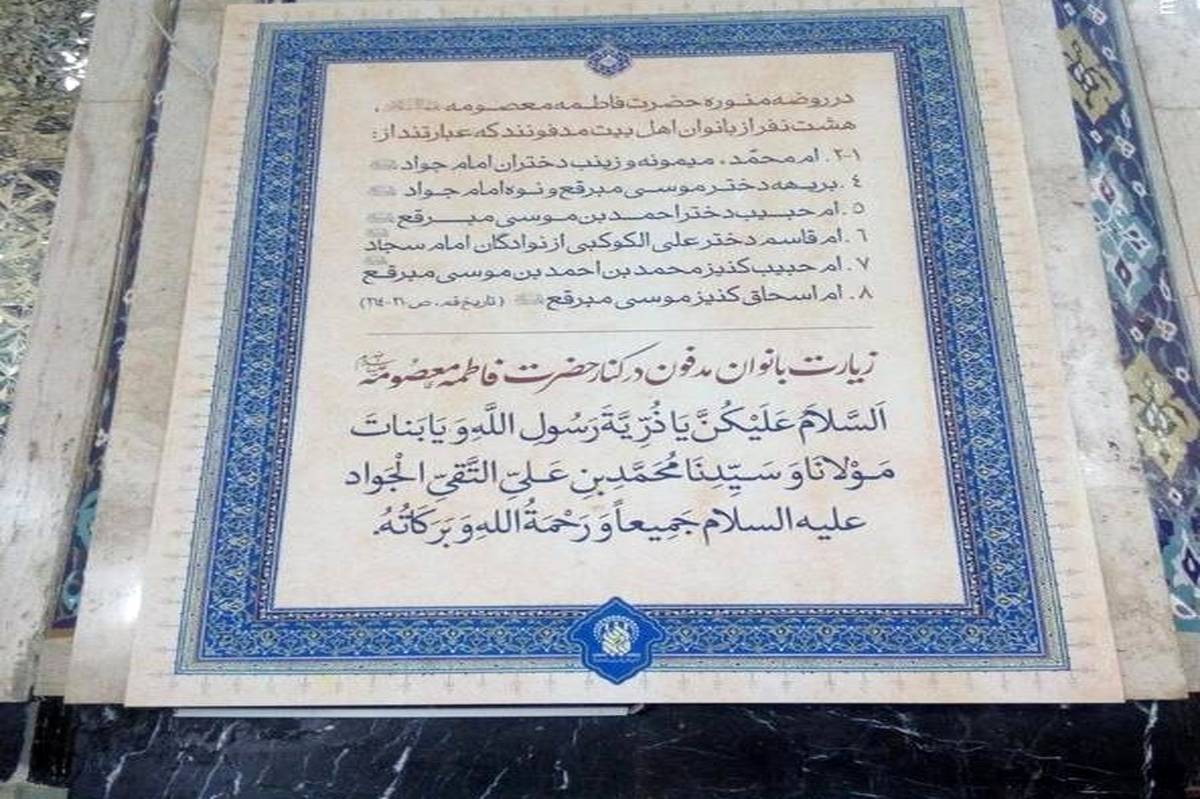 در روضه منوره حضرت فاطمه معصومه ،
هشت نفر از بانوان اهل بیت مدفونند که عبارتند از:
۱-۲. ام محمّد، میمونه و زینب دختران امام جواد
٤. بریهه دختر موسی مبرقع و نوه امام جواد
۵. ام حبیب دختر احمد بن موسی مبرقع
٦. ام قاسم دختر علی الکوکبی از نوادگان امام سجاد
۷. ام حبیب کنیز محمد بن احمد بن موسی مبرقع
۸. ام اسحاق کنیز موسی مبرقع (تاریخ قم، ص
زیارت بانوان مدفون در کنار حضرت فاطمه معصومه
اَلسَّلاَمَ عَلَیْکُنَّ یَا ذُرِّیَّةَ رَسُولِ اللَّهِ وَ یَا بَناتَ
مَوْلانَا وَ سَیِّدِنَا مُحَمَّدِ بنِ عَلیِّ التَّقیِّ الْجَواد
علیه السلام جَمِیعاً وَ رَحْمَةُ اللهِ وَ بَرَکَاتُهُ.